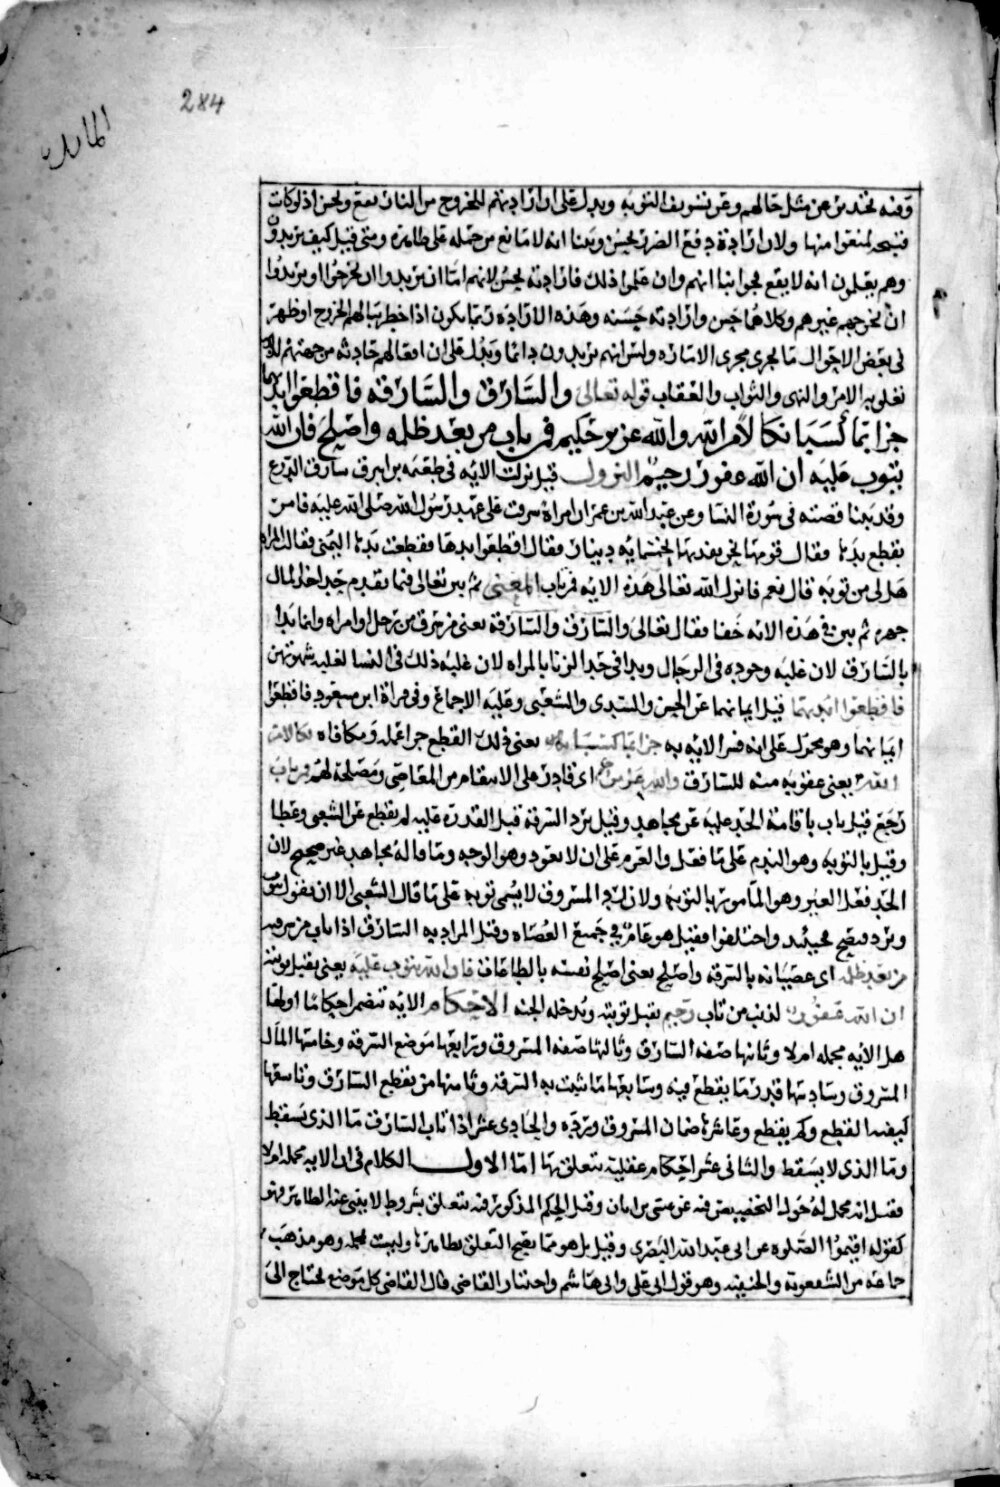 284
المائدة
وفيه تحذير عن مثل حالهم وعن تسويف التوبة ويدل على ان ارادتهم للخروج من النار تقع وتحسن اذ لو كانت
قبيحه لمنعوا منها ولان ارادة دفع الضرر تحسن وبينا انه لا مانع من حمله على ظاهره ومتى قيل كيف يريدون
وهم يعلمون انه لا يقع فجوابنا انهم وان علموا ذلك فارادته تحسن لانهم اما ان يريدوا ان يخرجوا او يريدوا
ان يخرجهم غيرهم وكلاهما حسن وارادته حسنه وهذه الارادة ربما يكون اذا خطر ببالهم الخروج او ظهر
في بعض الاحوال ما يجري مجرى الاماره وليس انهم يريدون دائما ويدل على ان افعالهم حادثه من جهتهم لذلك
تعلق بهم الامر والنهي والثواب والعقاب قوله تعالى والسارق والسارقه فاقطعوا ايديهما
جزا بما كسبا نكالا من الله والله عزيز حكيم فمن تاب من بعد ظلمه واصلح فان الله
يتوب عليه ان الله غفور رحيم النزول قيل نزلت الايه في طعمه بن ابيرق سارق الدرع
وقد بينا قصته في سورة النسا وعن عبد الله بن عمر ان امراة سرقت على عهد رسول الله صلى الله عليه فامر
بقطع يدها فقال قومها نحن نفديها بخمسمايه دينار فقال اقطعوا يدها فقطعت يدها اليمنى فقالت المراه
هل لي من توبه قال نعم فانزل الله تعالى هذه الايه فمن تاب المعنى ثم بين تعالى فيما تقدم حد اخذ المال
جهره ثم بين في هذه الايه خفا فقال تعالى والسارق والسارقة يعني من سرق من رجل او امراه وانما بدا
بالسارق لان غلبه وجوده في الرجال وبدا في حد الزنا بالمراه لان غلبه ذلك في النسا لغلبه شهوتهن
فاقطعوا ايديهما قيل ايمانهما عن الحسن والسدي والشعبي وعليه الاجماع وفي قراة ابن مسعود فاقطعوا
ايمانهما وهو محمول على انه فسر الايه به جزا بما كسبا يعني فعل ذلك القطع جزا عمله ومكافاه نكالا من
الله يعني عقوبه منه للسارق والله عزيز اي قادر على الانتقام من المعاصي ومصلحة لهم فمن تاب
رجع قيل تاب باقامة الحد عليه عن مجاهد وقيل برد السرقة قبل القدرة عليه لم يقطع عن الشعبي وعطا
وقيل بالتوبه وهو الندم على ما فعل والعزم على ان لا يعود وهو الوجه وما قاله مجاهد غير صحيح لان
الحد فعل الغير وهو المامور بالتوبه ولان رد المسروق لا يسمى توبه على ما قال الشعبي الا ان يقول يتوب
ويرد فيصح حينئذ واختلفوا فقيل هو عام في جميع العصاه وقيل المراد به السارق اذا تاب من سرقته
من بعد ظلمه اي عصيانه بالسرقه واصلح يعني اصلح نفسه بالطاعات فان الله يتوب عليه يعني يقبل توبته
ان الله غفور لذنب من تاب رحيم يقبل توبته ويدخله الجنه الاحكام الايه تتضمن احكاما اولها
هل الايه مجمله ام لا وثانيها صفه السارق وثالثها صفه المسروق ورابعها موضع السرقة وخامسها المال
المسروق وسادسها قدر ما يقطع فيه وسابعها ما يثبت به السرقه وثامنها من يقطع السارق وتاسعها
كيفية القطع وكم يقطع وعاشرها ضمان المسروق ورده والحادي عشر اذا تاب السارق ما الذي يسقط
وما الذي لا يسقط والثاني عشر احكام عقليه تتعلق بها اما الاول الكلام في ان الايه مجمله ام لا
فقيل انه مجمل عن عيسى بن ابان وقيل الحكم المذكور فيه يتعلق بشروط لا ينبي عنه الظاهر فهو
كقوله اقيموا الصلوة عن ابي عبد الله البصري وقيل بل هو مما يصح التعلق بظاهرها وليست مجمله وهو مذهب
جماعه من الشفعويه والحنفيه وهو قول ابي علي وابي هاشم واختيار القاضي قال القاضي كل موضع يحتاج الى